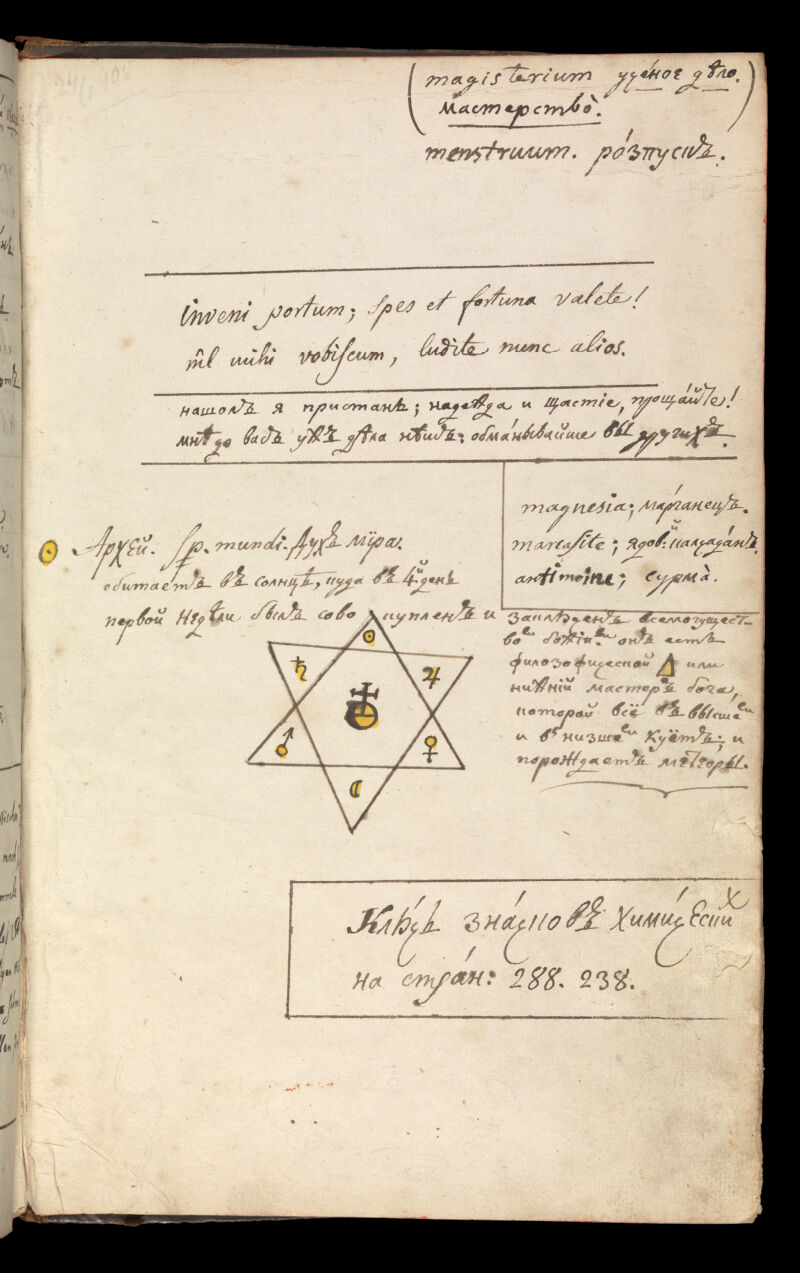 magisterium учéное дѣло.
мастерствò.
menstruum. рóзпускъ.
inveni portum; spes et fortuna valete!
nîl mihi vobiscum, ludite nunc alios.
нашолъ я пристань; надежда и щастіе, прощáйте!
мнѣ до васъ ужъ дѣла нѣтъ; обмáнывайте вы другихъ.
magnesia; мáрганецъ.
marcasite; ядов:й
antimoine; сурмà.
☉ Архей. Sp. mundi. Духъ мїра.
обитаетъ въ солнцѣ, куда въ 4й день
первой недѣли былъ сово купленъ и заключенъ всемогущест-
вомъ божіимъ онъ есть
филозофической 🜂 или
нижній мастеръ бога,
которой всё въ вышнемъ
и въ низшемъ куётъ; и
порождаетъ метеоры.
☉
♄ ♃
♂ ♀
☾
Клю́чь знáчковъ химическихъ
на стрáн: 288. 238.